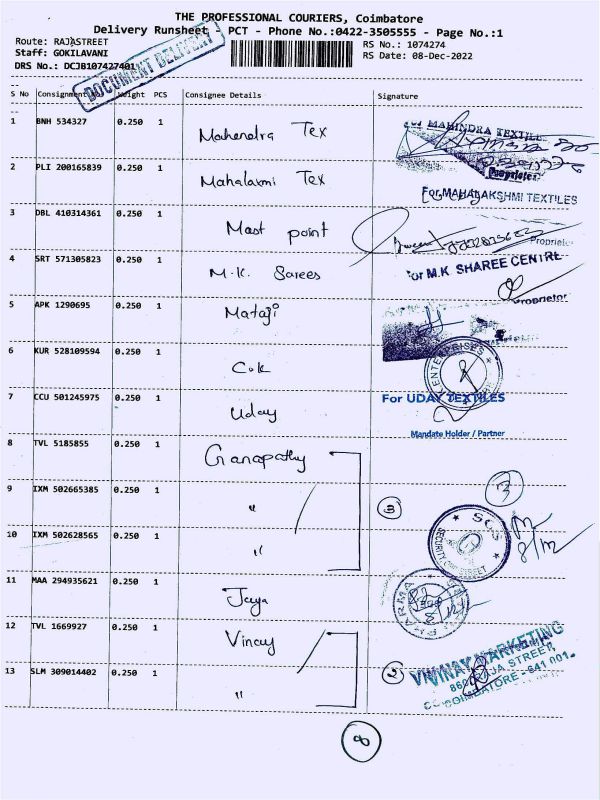 THE PROFESSIONAL COURIERS, Coimbatore
Delivery Runsheet - PCT - Phone No.:0422-3505555 - Page No.:1
Route: RAJASTREET
RS No.: 1074274
Staff: GOKILAVANI
RS Date: 08-Dec-2022
DRS No.: DCJB107427401
DOCUMENT DELIVERY
S No Consignment Weight PCS Consignee Details Signature
1 BNH 534327 0.250 1 Mahendra Tex
MAHINDRA TEXTILE
Proprietor
2 PLI 200165839 0.250 1 Mahalaxmi Tex
For MAHALAKSHMI TEXTILES
3 DBL 410314361 0.250 1 Mast point
Proprietor
4 SRT 571305823 0.250 1 M.K. Sarees
For M.K SHAREE CENTRE
Proprietor
5 APK 1290695 0.250 1 Mataji
6 KUR 528109594 0.250 1 Cok
ENTERPRISES
7 CCU 501245975 0.250 1 Uday
For UDAY TEXTILES
Mandate Holder / Partner
8 TVL 5185855 0.250 1 Ganapathy
9 IXM 502665385 0.250 1 "
3
10 IXM 502628565 0.250 1 "
SECURITY
8/12
11 MAA 294935621 0.250 1 Jaya
PHARMA
12 TVL 1669927 0.250 1 Vinay
13 SLM 309014402 0.250 1 "
2
VINAY MARKETING
RAJA STREET,
COIMBATORE - 641 001.
8